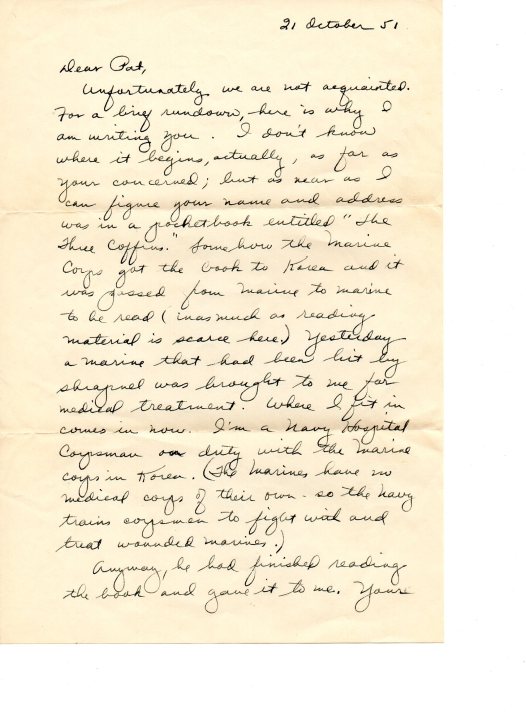 21 October 51
Dear Pat,
Unfortunately we are not acquainted.
For a brief rundown, here is why I
am writing you. I don't know
where it begins, actually, as far as
your concerned; but as near as I
can figure your name and address
was in a pocketbook entitled "The
Three Coffins." Somehow the Marine
Corps got the book to Korea and it
was passed from marine to marine
to be read (inasmuch as reading
material is scarce here.) Yesterday
a marine that had been hit by
shrapnel was brought to me for
medical treatment. Where I fit in
comes in now. I'm a Navy Hospital
Corpsman on duty with the Marine
Corps in Korea. (The Marines have no
medical corps of their own - so the Navy
trains corpsmen to fight with and
treat wounded marines.)
Anyway, he had finished reading
the book and gave it to me. Your